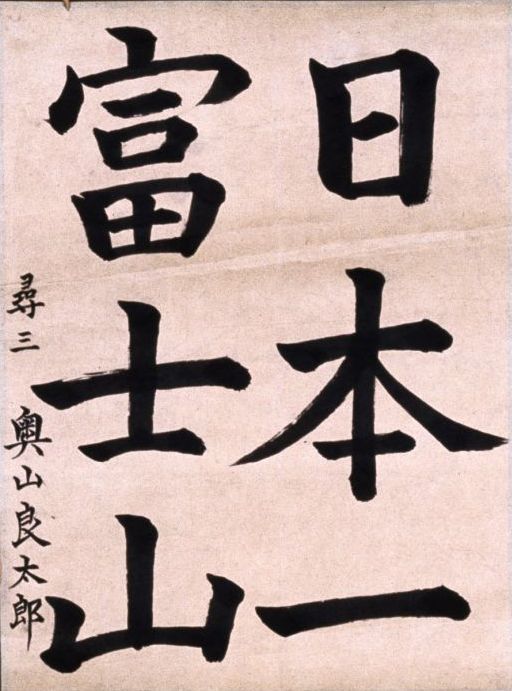 日本一
富士山
尋三 奥山良太郎